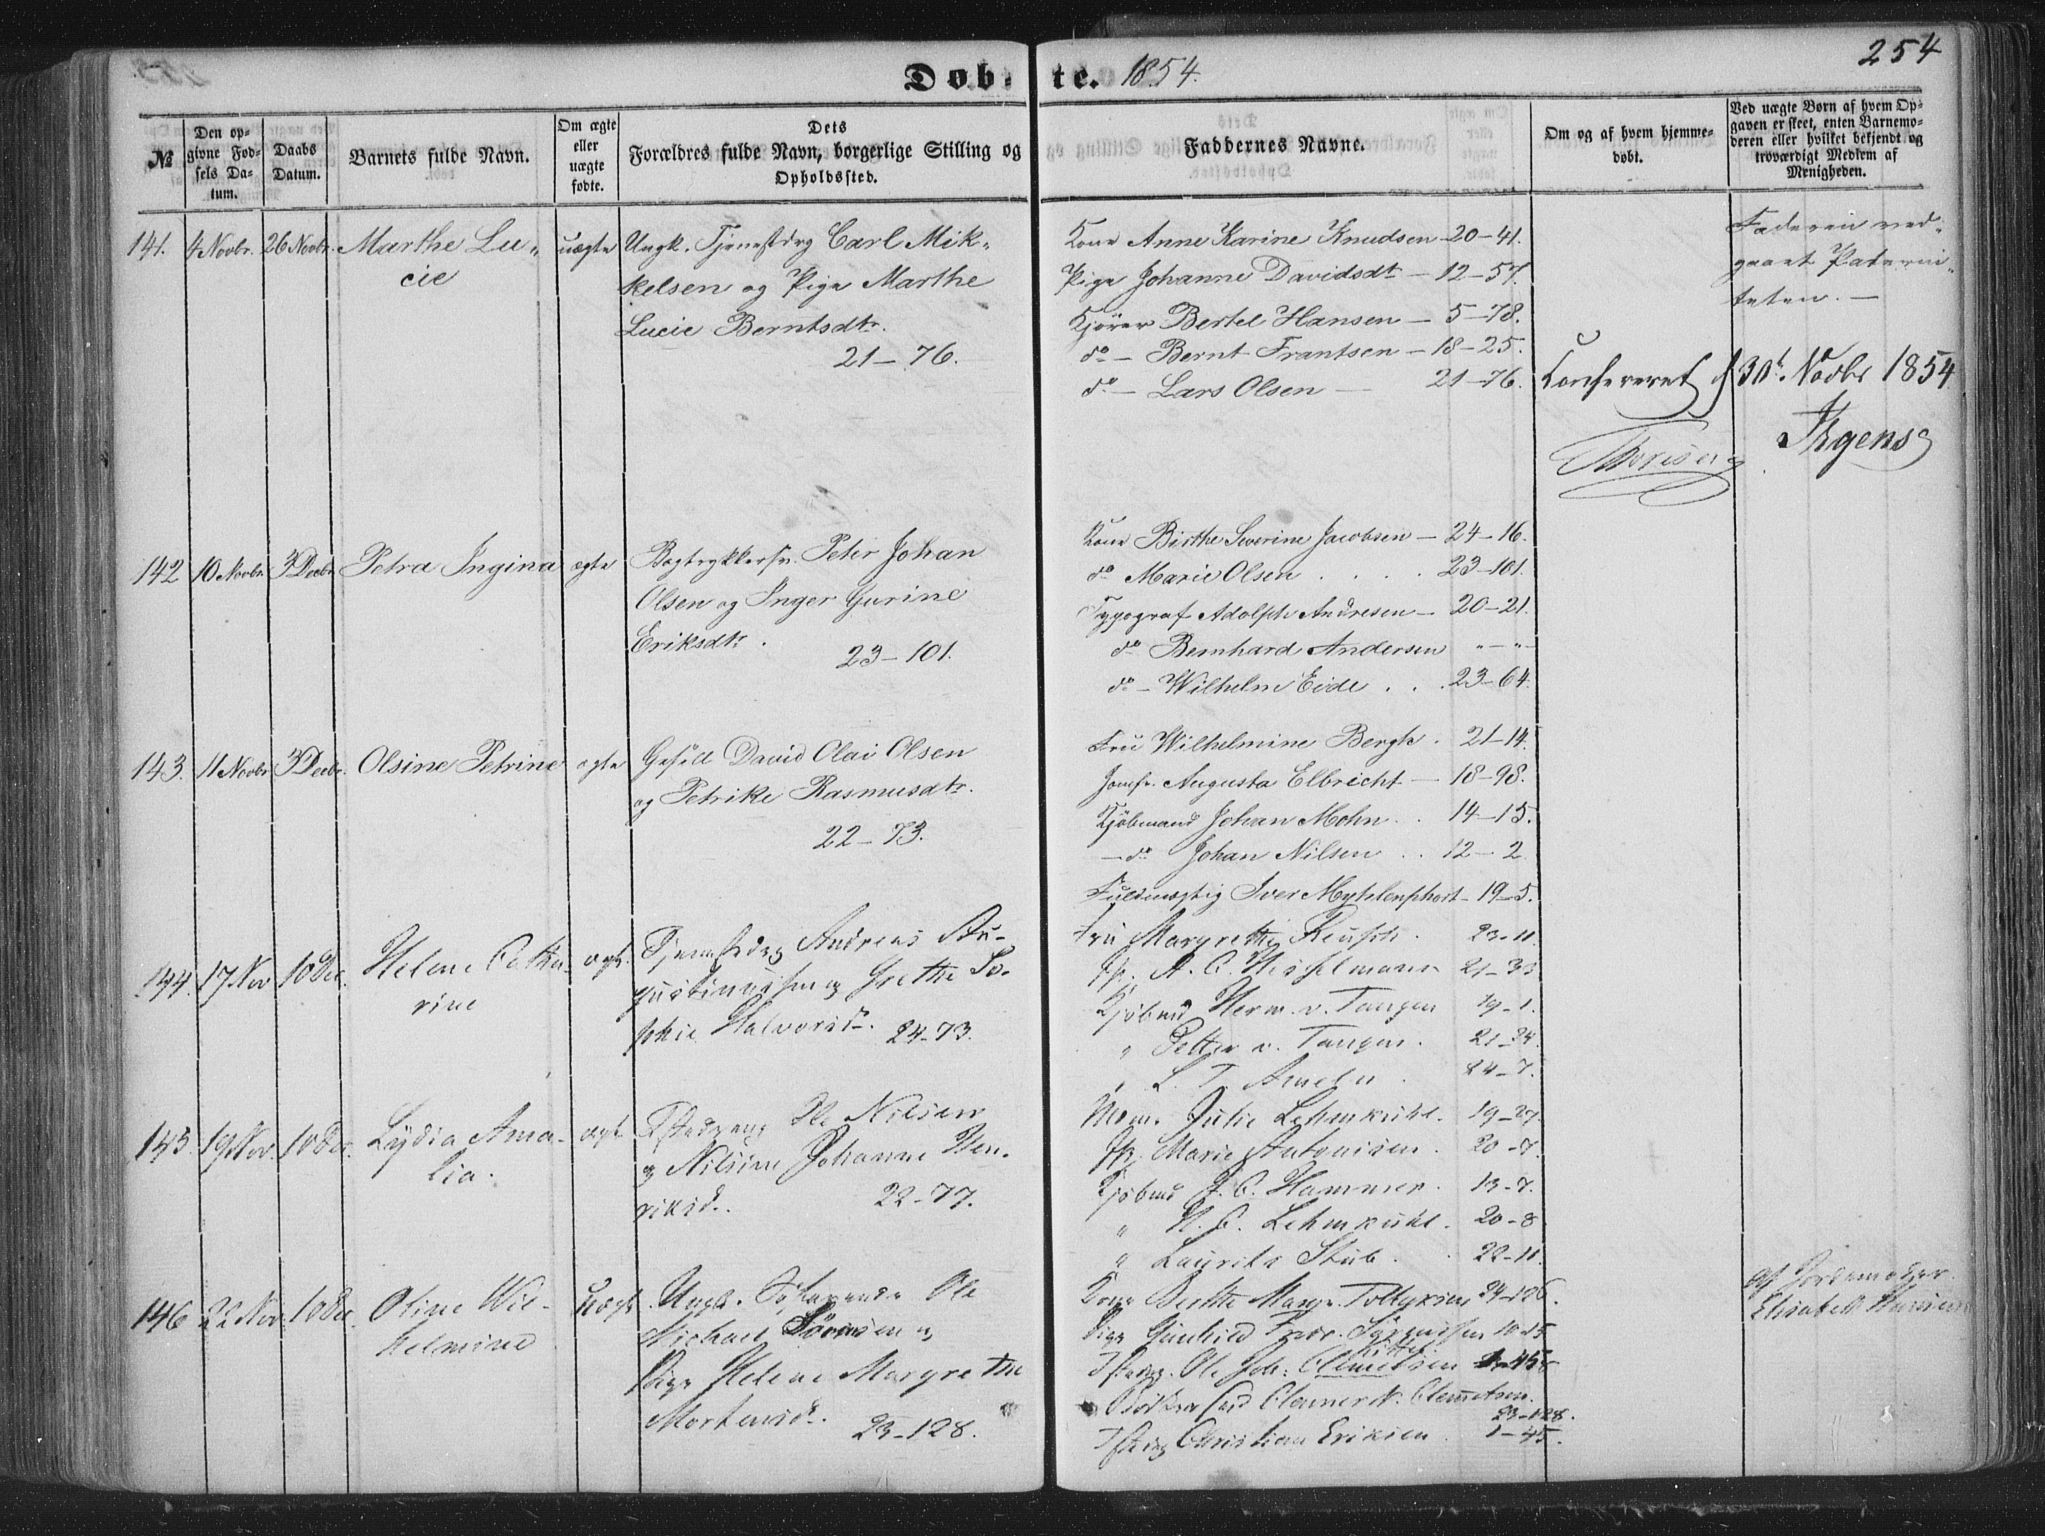 254
Døbte. 1854.
№
Den opgivne Fødsels Datum.
Daabs Datum.
Barnets fulde Navn.
Om ægte eller uægte fødte.
Dets Forældres fulde Navn, borgerlige Stilling og Opholdssted.
Faddernes Navne.
Om og af hvem hjemmedøbt.
Ved uægte Børn af hvem Opgaven er skeet, enten Barnemoderen eller hvilket bekjendt og troværdigt Medlem af Menigheden.
141. 4 Novbr. 26 Novbr. Marthe Lucie uægte
Ungk. Tjenestdrg Carl Mikkelsen og Pige Marthe
Lucie Berntsdtr.
21–76.
Kone Anne Karine Knudsen – 20–41.
Pige Johanne Davidsdt – 12–57.
Kjører Bertel Hansen – 5–78.
do – Bernt Frantsen – 18–25.
do – Lars Olsen – 21–76.
Faderen vedgaaet Paterniteten. –
Confereret d 30t Novbr 1854
142 10 Novbr 3 Decbr Petra Ingina ægte
Bogtrykkersv. Peter Johan
Olsen og Inger Gurine
Eriksdtr.
23–101.
Kone Birthe Severine Jacobsen – 24–16.
do Marie Olsen . . . . 23–101.
Typograf Adolph Andresen – 20–21.
do Bernhard Andersen " – "
do – Wilhelm Eide . . . 23–64.
143. 11 Novbr 3 Decbr. Olsine Petrine ægte
Gesell David Olai Olsen
og Petrike Rasmusdtr.
22–73.
Fru Wilhelmine Bergh . 21–14.
Jomfr. Augusta Elbricht – 18–98.
Kjøbmand Johan Mohn . . 14–15.
– do Johan Nilsen . . 12–2.
Fuldmægtig Iver Myhlenphort – 19–5.
144. 17 Nov 10 Dec. Helene Cathrine ægt.
Tjenestedrg Andreas Augustinussen og Grethe Sophie Halvorsd. 24–73.
Fru Margrethe Reusch . 23–11.
A. C. Hesselmann 21–33
Kjøbmd Herm. v. Tangen 19–1.
" Petter v. Tangen. 21–24.
" L. T. Ameln . 24–7.
145. 19 Nov 10 Dec. Lydia Amalia. ægt
Ole Nilsen
og Nilsine Johanne Henriksd.
22–77.
Mdm. Julie Lehmkuhl. 19–27.
Marie Antonisen. 20–7.
Kjøbmd J. C. Hammer. 13–7.
" H. C. Lehmkuhl. 20–8
" Laurits Stub . 22–11.
146 22 Nov. 10 Dec. Oline Wilhelmine uægt
Ungk. Søfarende Ole
Michael Sørensen og
Pige Helene Margrethe
Mortensd. 23–128.
Kone Berthe Marg. Tollefsen 24–106.
Pige Gunhild Fredr. Sørensen 10–15
Ole Joh: Clemetsen 1–45
Clemetsen.
23–128.
Christian Eriksen . 1–45.
af Jordemoder
Elisabeth Hansen